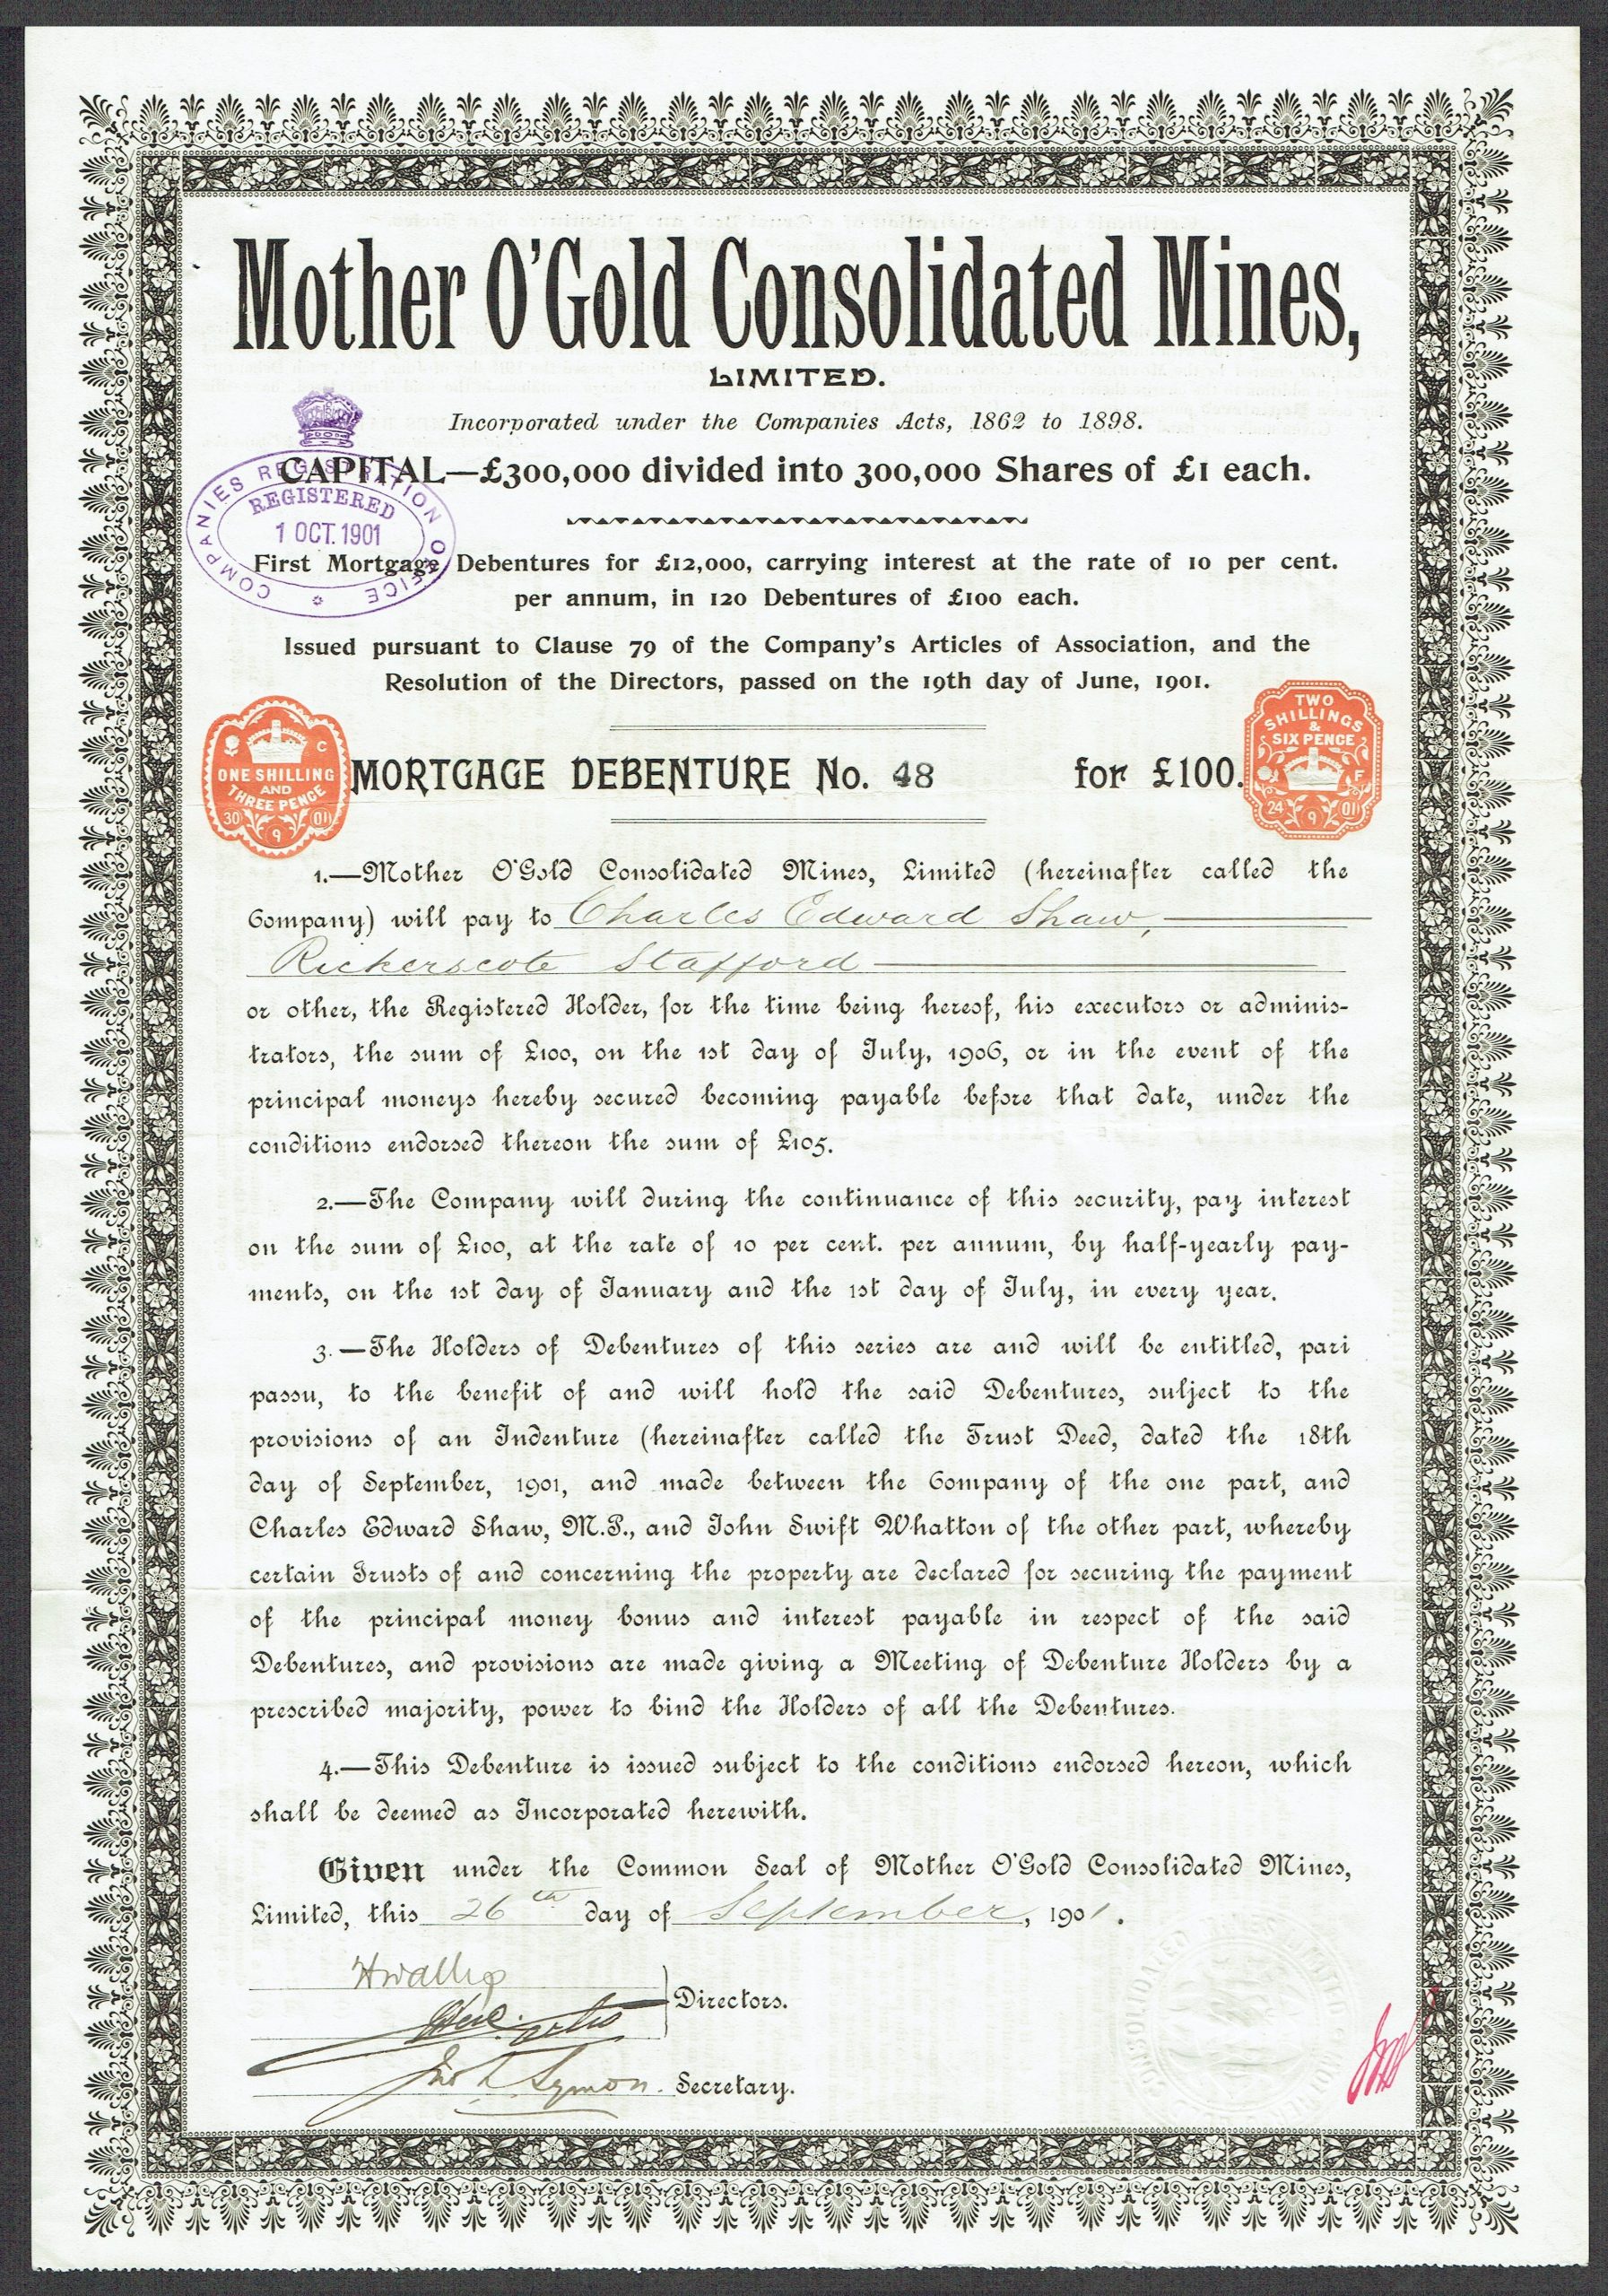 Mother O'Gold Consolidated Mines,
LIMITED.
Incorporated under the Companies Acts, 1862 to 1898.
CAPITAL—£300,000 divided into 300,000 Shares of £1 each.
COMPANIES REGISTRATION OFFICE
REGISTERED
1 OCT. 1901
First Mortgage Debentures for £12,000, carrying interest at the rate of 10 per cent.
per annum, in 120 Debentures of £100 each.
Issued pursuant to Clause 79 of the Company's Articles of Association, and the
Resolution of the Directors, passed on the 19th day of June, 1901.
C
ONE SHILLING
AND
THREE PENCE
30 9 01
MORTGAGE DEBENTURE No. 48 for £100.
TWO
SHILLINGS
&
SIX PENCE
F
24 9 01
1.—Mother O'Gold Consolidated Mines, Limited (hereinafter called the
Company) will pay to Charles Edward Shaw,
Rickerscote Stafford
or other, the Registered Holder, for the time being hereof, his executors or adminis-
trators, the sum of £100, on the 1st day of July, 1906, or in the event of the
principal moneys hereby secured becoming payable before that date, under the
conditions endorsed thereon the sum of £105.
2.—The Company will during the continuance of this security, pay interest
on the sum of £100, at the rate of 10 per cent. per annum, by half-yearly pay-
ments, on the 1st day of January and the 1st day of July, in every year.
3.—The Holders of Debentures of this series are and will be entitled, pari
passu, to the benefit of and will hold the said Debentures, subject to the
provisions of an Indenture (hereinafter called the Trust Deed, dated the 18th
day of September, 1901, and made between the Company of the one part, and
Charles Edward Shaw, M.P., and John Swift Whatton of the other part, whereby
certain Trusts of and concerning the property are declared for securing the payment
of the principal money bonus and interest payable in respect of the said
Debentures, and provisions are made giving a Meeting of Debenture Holders by a
prescribed majority, power to bind the Holders of all the Debentures.
4.—This Debenture is issued subject to the conditions endorsed hereon, which
shall be deemed as Incorporated herewith.
Given under the Common Seal of Mother O'Gold Consolidated Mines,
Limited, this 26th day of September, 1901.
Directors.
Symon. Secretary.
CONSOLIDATED